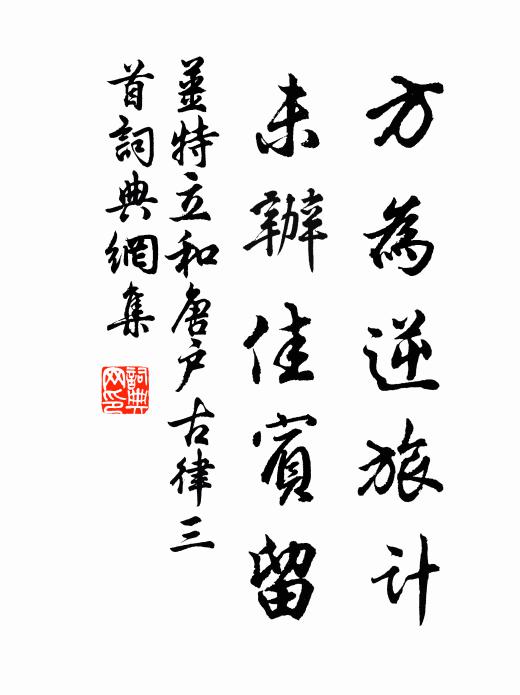 方為逆旅計
未辦佳賓留
姜特立和唐戶古律三
首詞典網集
詞典
网印